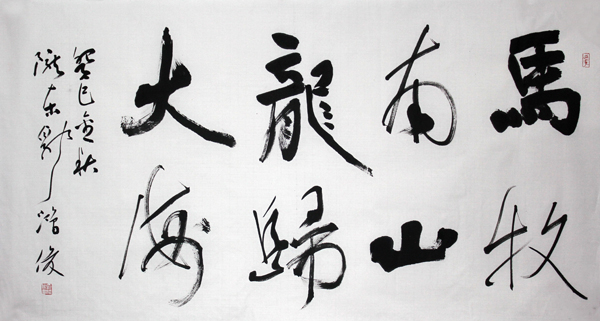 馬牧
南山
龍歸
大海
癸巳金秋
隴東
浩俊